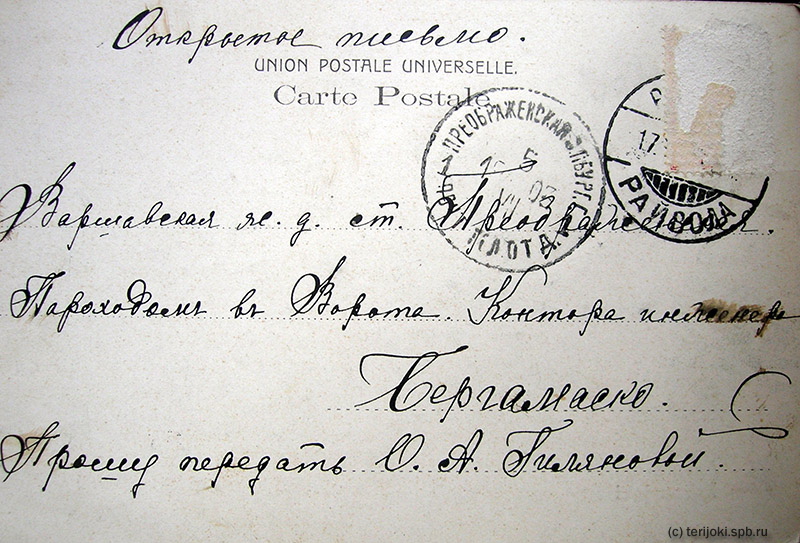 Открытое письмо.
UNION POSTALE UNIVERSELLE.
Carte Postale
ПРЕОБРАЖЕНСКАЯ С.П.БУРГ.
5
VII 03
ПЛОТА
17
РАЙВОЛА
Варшавская ж. д. ст. Преображенская.
Пароходомъ въ Ворота. Контора инженера
Бергамаско.
Прошу передать О. А. Гиляновой.
(c) terijoki.spb.ru